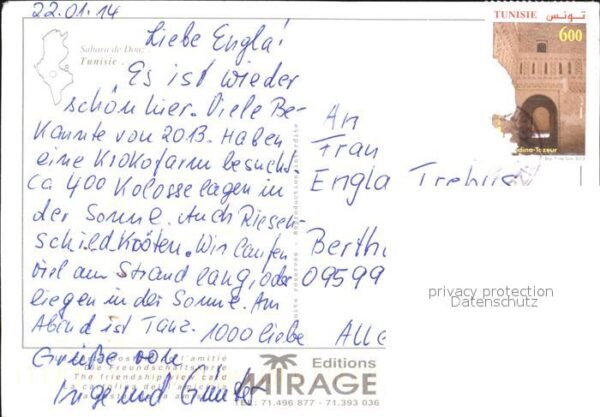 22.01.14
Liebe Engla!
Sahara de Douz
Tunisie
Es ist wieder
schön hier. Viele Be-
kannte von 2013. Haben
eine Krokofarm besucht.
Ca 400 Kolosse lagen in
der Sonne. Auch Riesen-
schildkröten. Wir laufen
viel am Strand lang, oder
liegen in der Sonne. Am
Abend ist Tanz. 1000 liebe
Grüße von
Inge und Günter
TUNISIE تونس
600
An
Frau
Engla
Berth
09599
privacy protection
Datenschutz
ALLE
die Freundschaftskarte
The friendship card
Editions
MIRAGE
TEL: 71.496 877 - 71.393 036